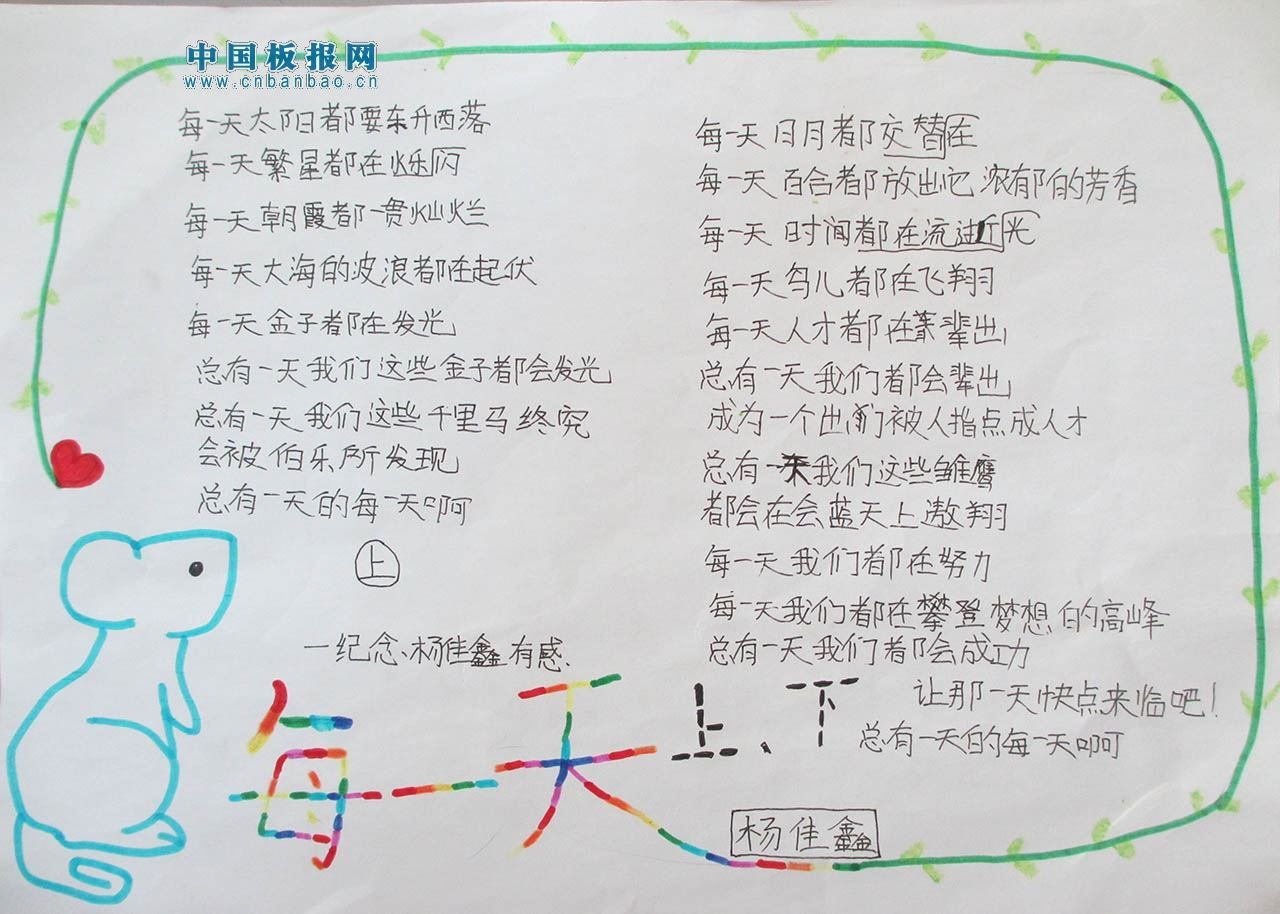 中国板报网
www.cnbanbao.cn
每一天太阳都要东升西落
每一天繁星都在烁闪
每一天朝霞都一贯灿烂
每一天大海的波浪都在起伏
每一天金子都在发光
总有一天我们这些金子都会发光
总有一天我们这些千里马终究
会被伯乐所发现
总有一天的每一天啊
上
一纪念、杨佳鑫有感.
每一天日月都交替在
每一天百合都放出它浓郁的芳香
每一天时间都在流逝光
每一天鸟儿都在飞翔
每一天人才都在辈出
总有一天我们都会辈出
成为一个出们被人指点成人才
总有一天我们这些雏鹰
都会在会蓝天上遨翔
每一天我们都在努力
每一天我们都在攀登梦想的高峰
总有一天我们都会成功
让那一天快点来临吧!
总有一天的每一天啊
每一天上、下
杨佳鑫